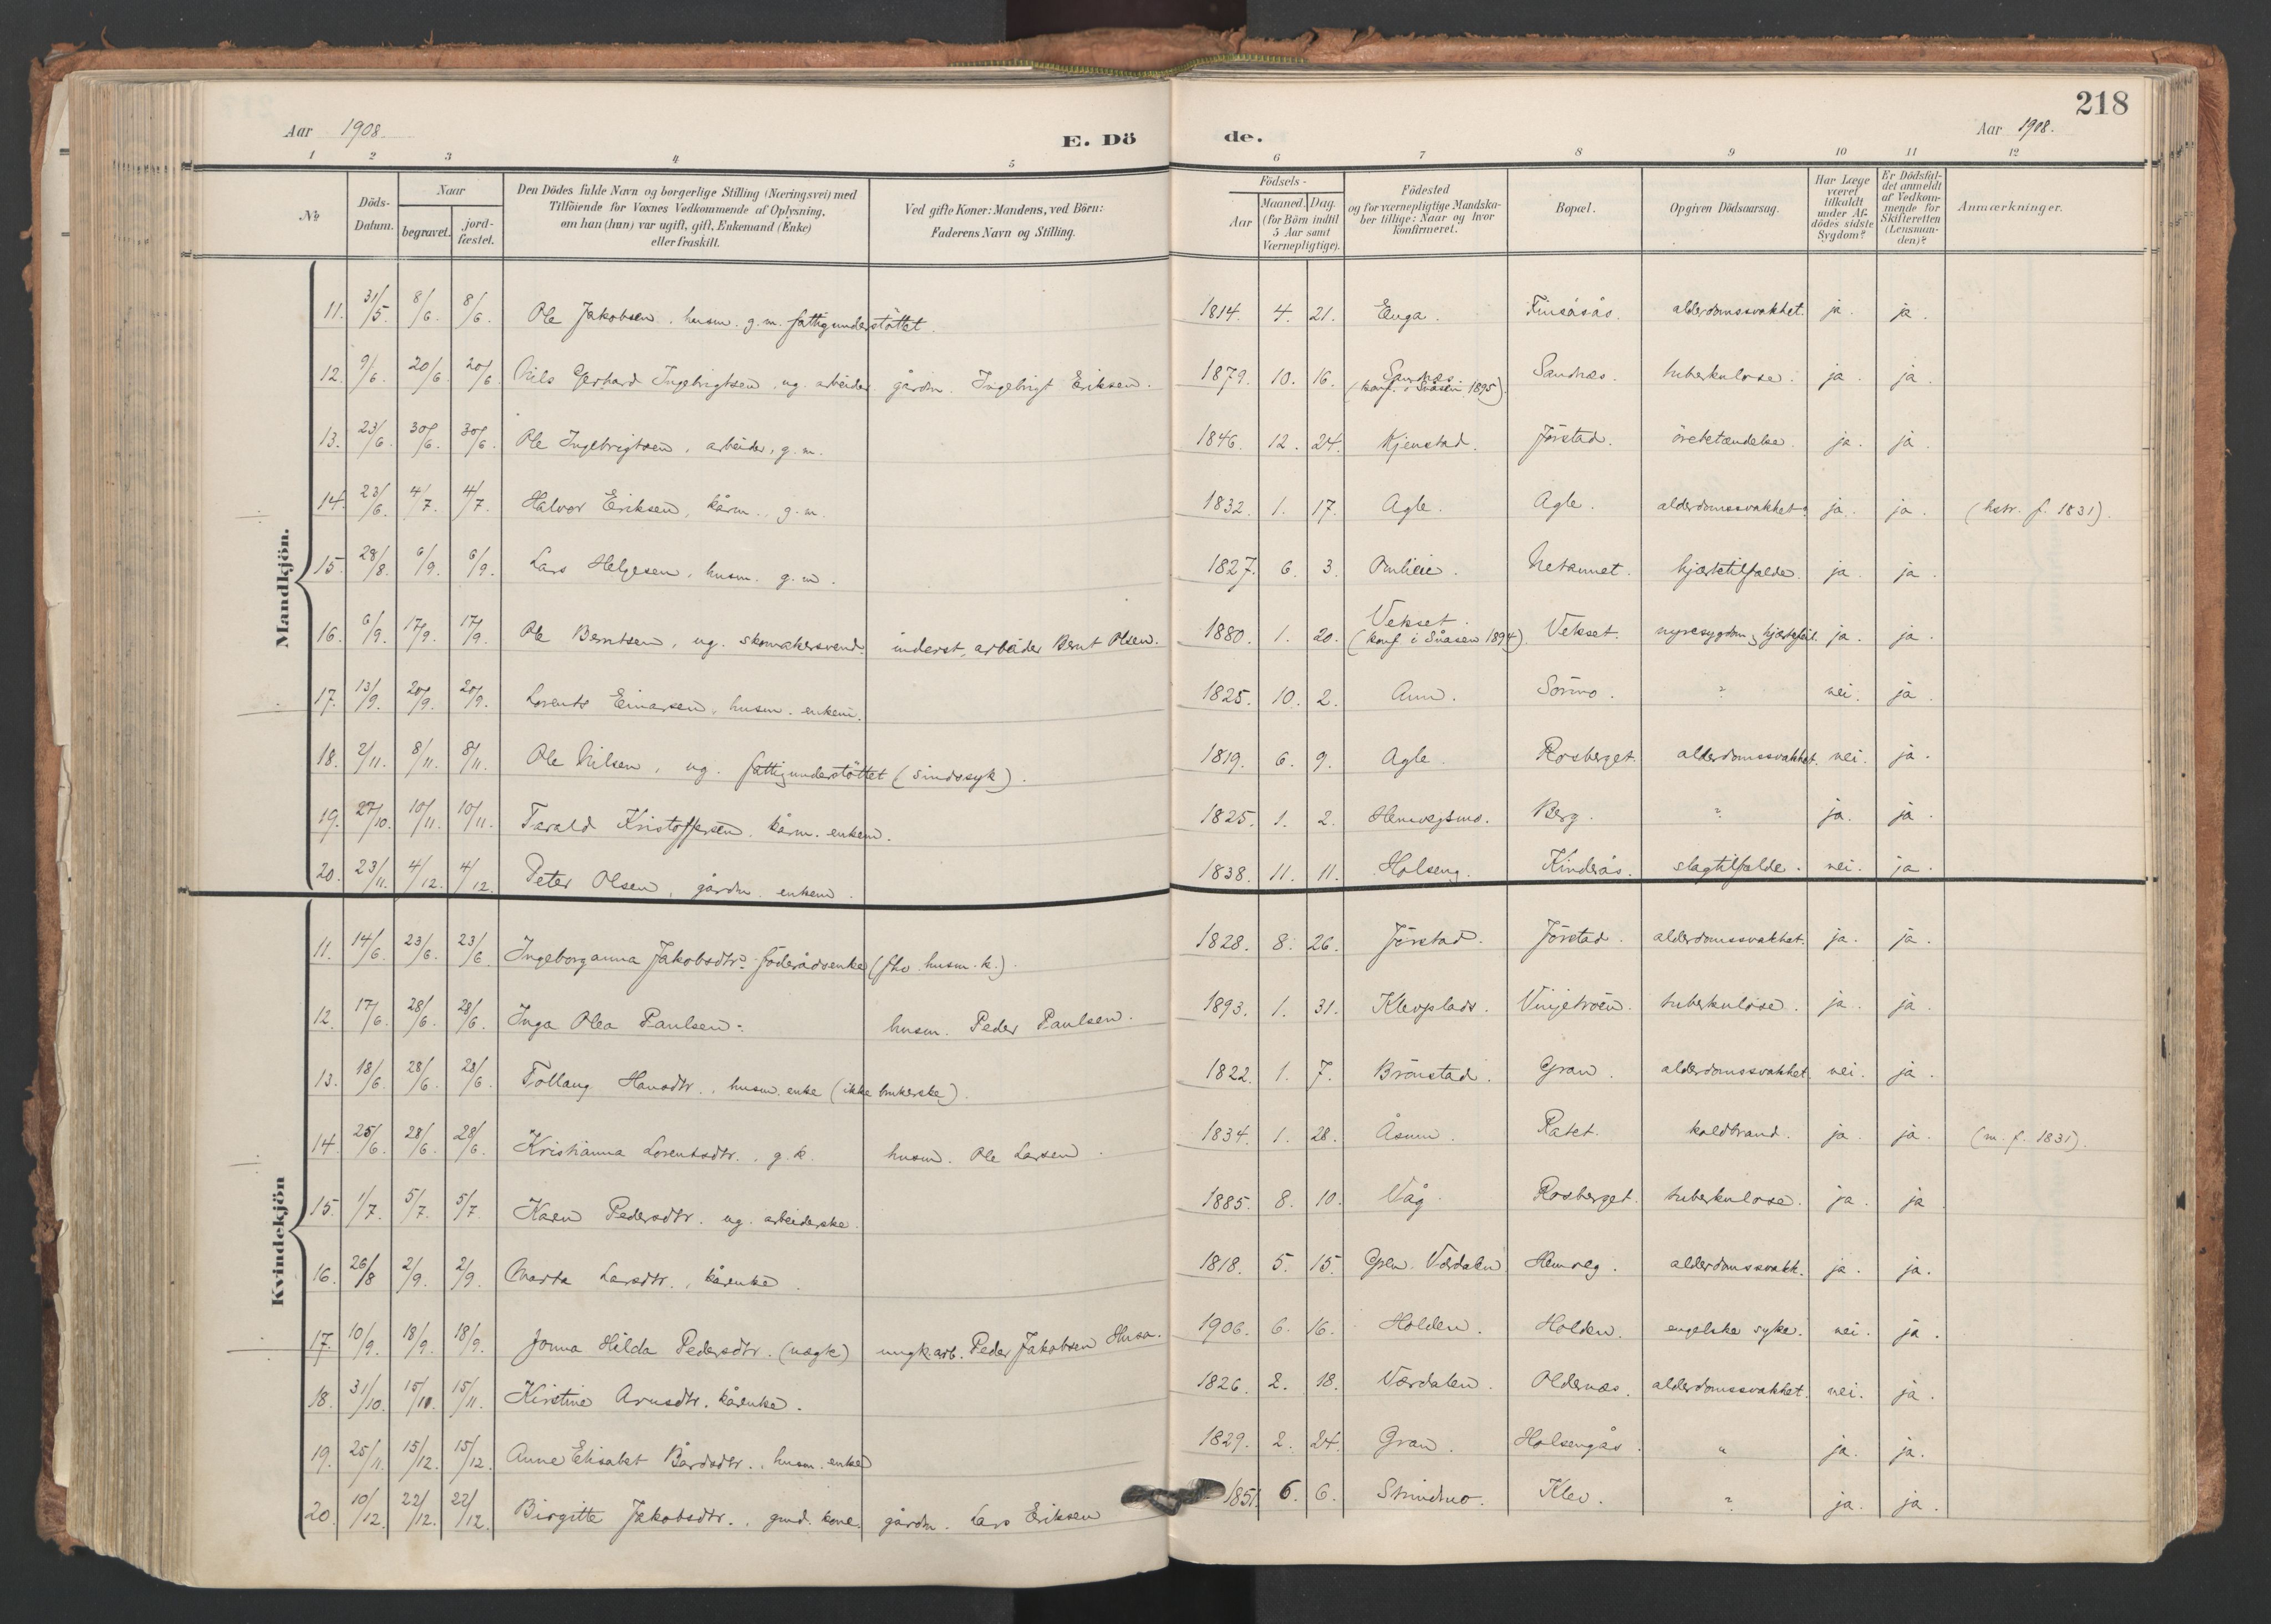 218
Aar 1908.
E. Dö
de.
Aar 1908.
1 2 3 4 5 6 7 8 9 10 11 12
No
Döds-Datum.
Naar
begravet.
jord-fæstet.
Den Dödes fulde Navn og borgerlige Stilling (Næringsvei) med
Tilföiende for Voxnes Vedkommende af Oplysning,
om han (hun) var ugift, gift, Enkemand (Enke)
eller fraskilt.
Ved gifte Koner: Mandens, ved Börn:
Faderens Navn og Stilling.
Födsels-
Aar
Maaned.
Dag.
(for Börn indtil
5 Aar samt
Værnepligtige).
Födested
og for værnepligtige Mandska-
ber tillige: Naar og hvor
konfirmeret.
Bopæl.
Opgiven Dödsaarsag.
Har Læge
været
tilkaldt
under Af-
dödes sidste
Sygdom?
Er Dödsfal-
det anmeldt
af Vedkom-
mende for
Skifteretten
(Lensman-
den)?
Anmærkninger.
Mandkjön.
11. 31/5. 8/6. 8/6. Ole Jakobsen, husm. g.m. fattigunderstöttet. 1814. 4. 21. Enga. Finsåsås. alderdomssvakhet. ja. ja.
12. 9/6. 20/6. 20/6. Nils Gerhard Ingebrigtsen, ug. arbeider gårdm. Ingebrigt Eriksen. 1879. 10. 16. Sandnes. (konf. i Snåsen 1895). Sandnes. tuberkulose. ja. ja.
13. 23/6. 30/6. 30/6. Ole Ingebrigtsen, arbeider, g.m. 1846. 12. 24. Kjenstad. Jörstad. örebetændelse. ja. ja.
14. 23/6. 4/7. 4/7. Halvor Eriksen, kårm., g.m. 1832. 1. 17. Agle. Agle. alderdomssvakhet. ja. ja. (hstr. f. 1831).
15. 28/8. 6/9. 6/9. Lars Helgesen, husm. g.m. 1827. 6. 3. hjertetilfælde. ja. ja.
16. 6/9. 17/9. 17/9. Ole Berntsen, ug. skomakersvend. inderst, arbeider Bernt Olsen. 1880. 1. 20. Vekset. (konf. i Snåsen 1894). Vekset. nyresygdom, hjertefeil. ja. ja.
17. 13/9. 20/9. 20/9. Lorents Einarsen, husm. enkem. 1825. 10. 2. Aun. Sörmo. ? nei. ja.
18. 2/11. 8/11. 8/11. Ole Nilsen, ug. fattigunderstöttet (sindssyk). 1819. 6. 9. Agle. Rosberget. alderdomssvakhet. nei. ja.
19. 27/10. 10/11. 10/11. Tarald Kristoffersen. kårm. enkem. 1825. 1. 2. Hemvegsmo. Berg. ? ja. ja.
20. 23/11. 4/12. 4/12. Peter Olsen, gårdm. enkem. 1838. 11. 11. Holseng. Kinderås. slagtilfælde. nei. ja.
Kvindekjön
11. 14/6. 23/6. 23/6. Ingeborganna Jakobsdtr. föderådsenke (fhv. husm. k.). 1828. 8. 26. Jörstad. Jörstad. alderdomssvakhet. ja. ja.
12. 17/6. 28/6. 28/6. Inga Olea Paulsen. husm. Peder Paulsen. 1893. 1. 31. Klevplads. Vinjetroen. tuberkulose. ja. ja.
13. 18/6. 28/6. 28/6. Tollaug Hansdtr., husm. enke (ikke brukerske). 1822. 1. 7. Brönstad. Gran. alderdomssvakhet. nei. ja.
14. 25/6. 28/6. 28/6. Kristianna Lorentsdtr., g.k. husm. Ole Larsen. 1834. 1. 28. Åsum. Ratet. koldbrand. ja. ja. (m. f. 1831).
15. 1/7. 5/7. 5/7. Karen Pedersdtr. ug. arbeiderske. 1885. 8. 10. Våg. Rosberget. tuberkulose. ja. ja
16. 26/8 2/9. 2/9. Marta Larsdtr., kårenke. 1818. 5. 15. Værdalen Hemveg. alderdomssvakh. ja. ja.
17. 10/9. 18/9. 18/9. Jonna Hilda Pedersdtr. (uegte) ungk. arb. Peder Jakobsen Husa. 1906. 6. 16. Holden. Holden. engelske syke. nei. ja.
18. 31/10. 15/10. 15/11. Kirstine Arnsdtr. kårenke. 1826. 2. 18. Værdalen. Oldernes. alderdomssvakhet. nei. ja.
19. 25/11. 15/12. 15/12. Anne Elisabet Bårdsdtr., husm. enke 1829. 2. 24. Gran. Holsengås. " ja. ja.
20. 10/12. 22/12. 22/12. Birgitte Jakobsdtr., gmd. kone. gårdm. Lars Eriksen 1851. 6. 6. Strindmo. Klev. ? ja. ja.